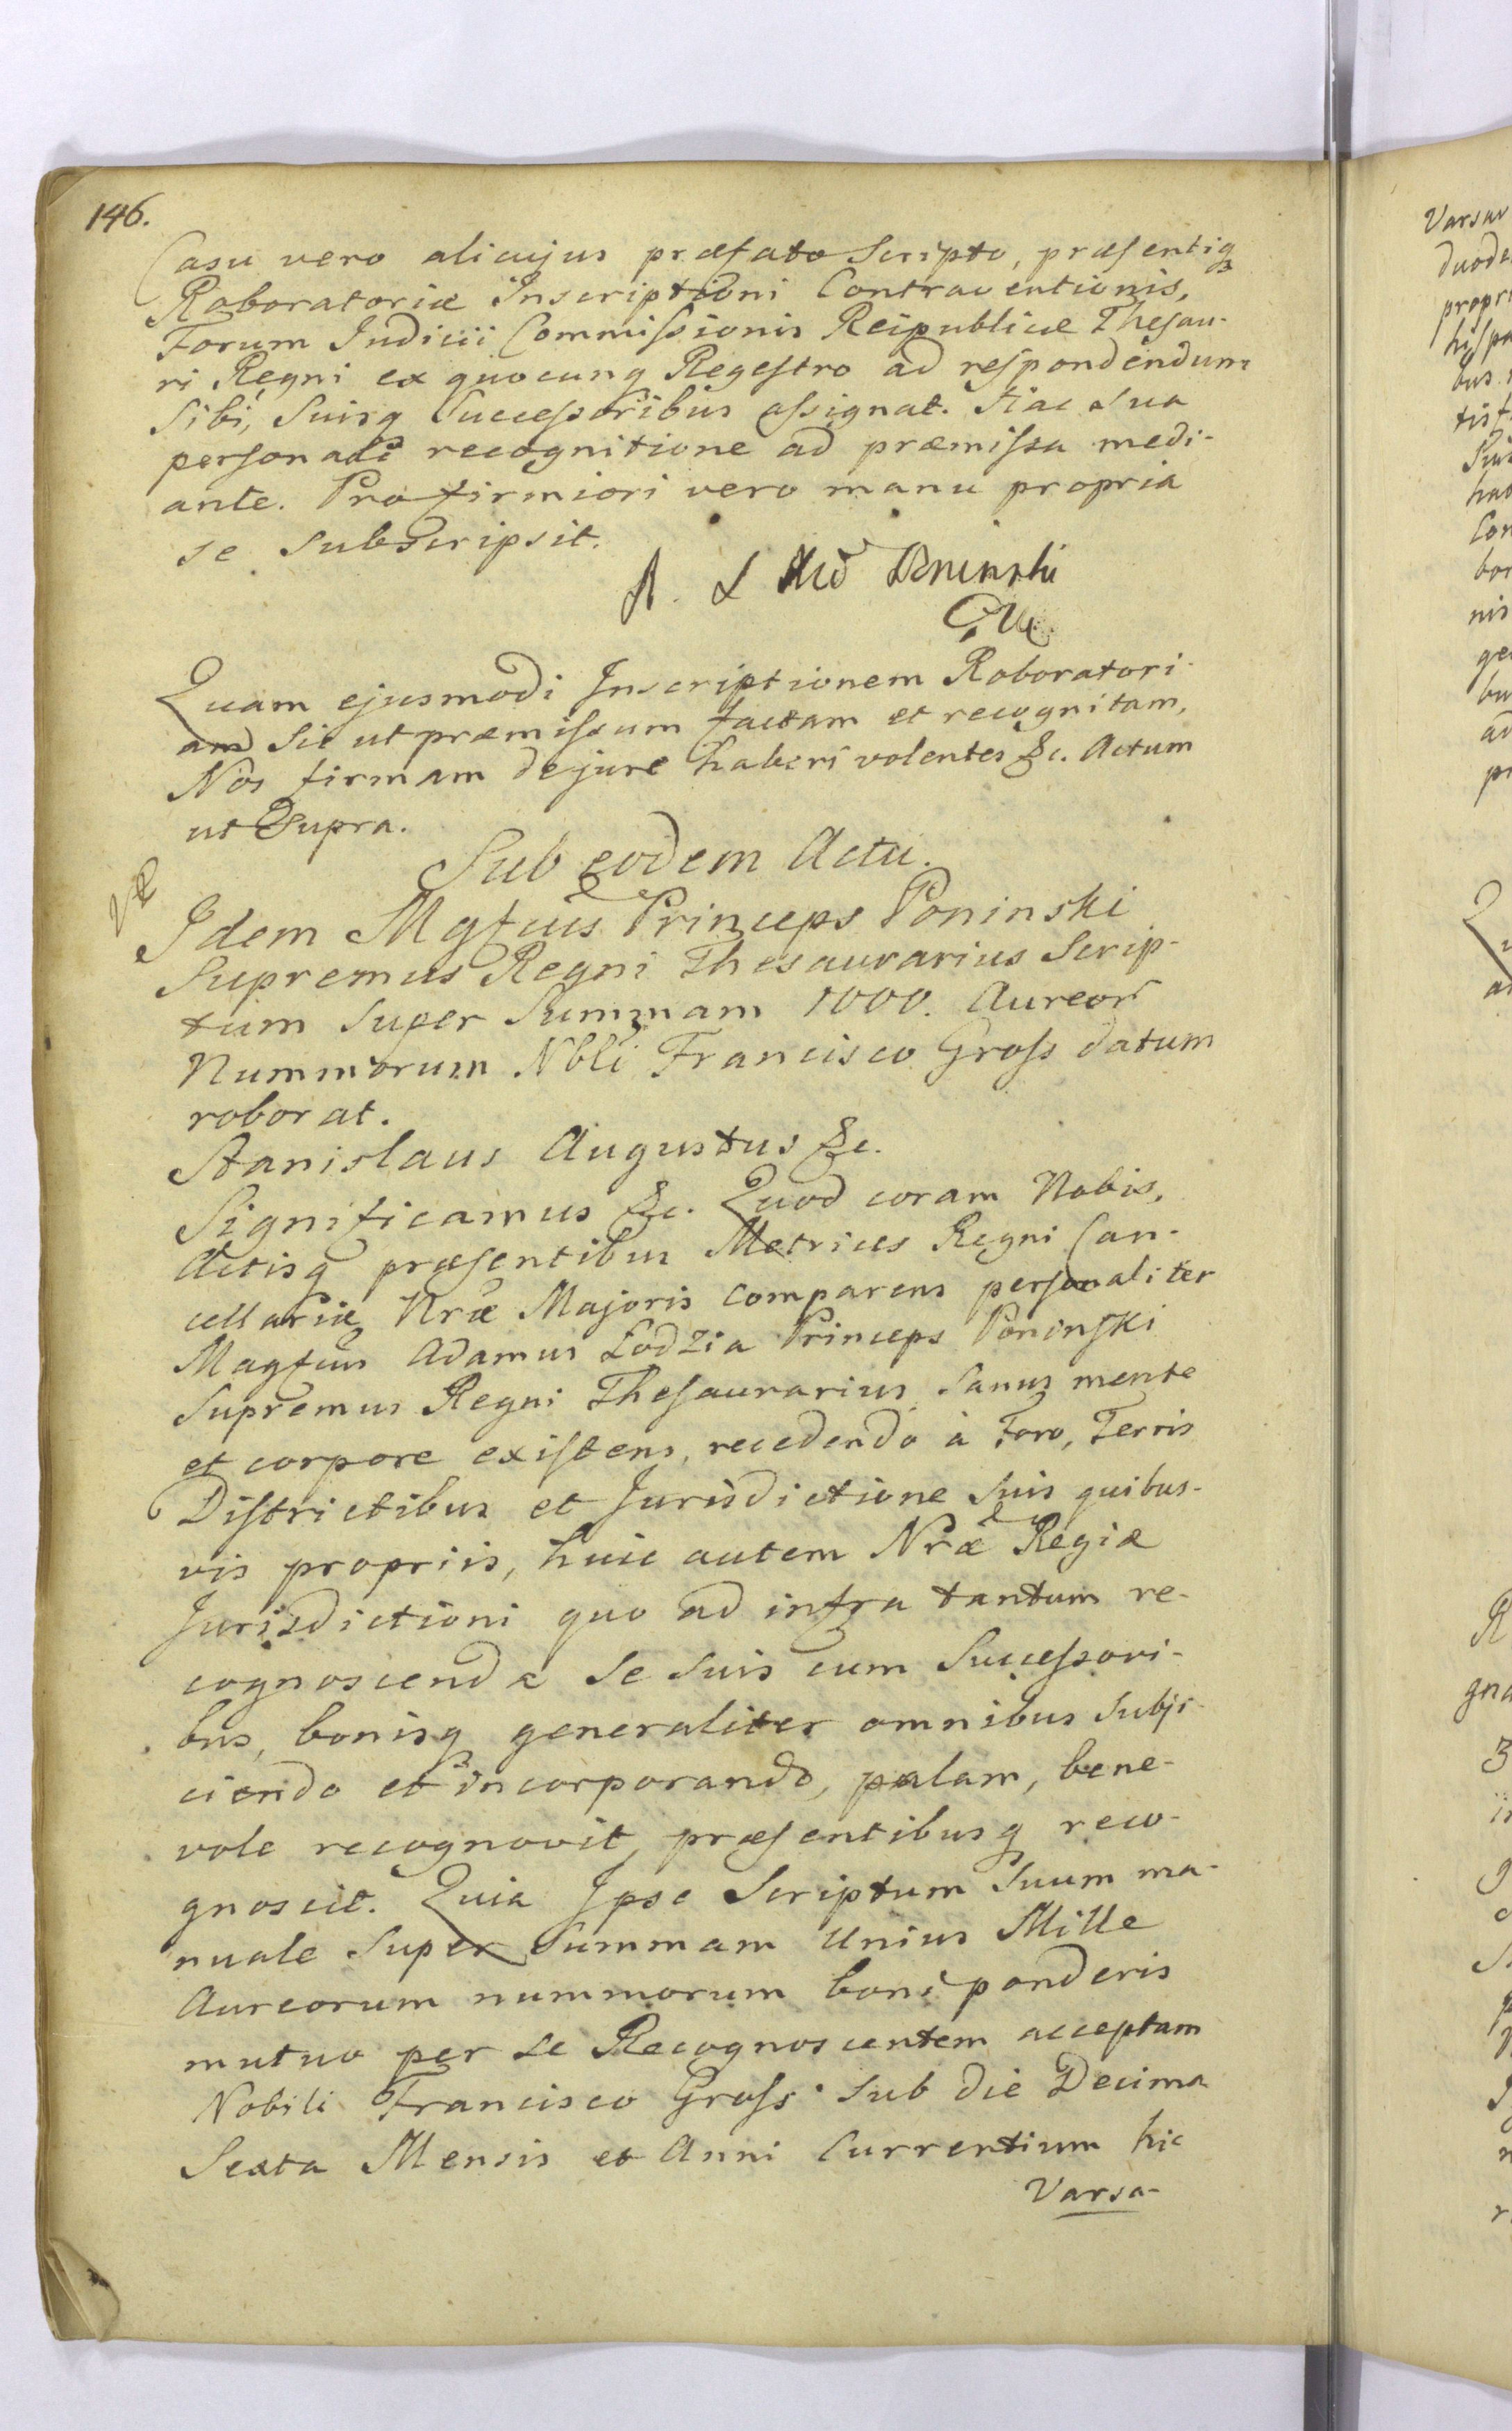 146.
Casu vero alicujus præfato Scripto, præsentiq
Roboratoriæ Inscriptioni Contraventionis,
Forum Judicii Commissionis Reipublicæ Thesau-
ri Regni ex quocunq Regestro ad respondendum
Sibi, Suisq Successoribus assignat. Hac Sua
personali recognitione ad præmissa medi-
ante. Pro firmiori vero manu propria
se subscripsit.
A. Poninski
Quam ejusmodi Inscriptionem Roboratori-
am Sic ut præmissum factam et recognitam,
Nos firmam de jure haberi volentes &c. Actum
ut Supra.
Sub eodem Actu.
Idem Mgfcus Princeps Poninski
Supremus Regni Thesaurarius Scrip-
tum Super Summam 1000. Aureor
Nummorum Nbli Francisco Gross datum
roborat.
Stanislaus Augustus &c.
Significamus &c. Quod coram Nobis,
Actisq præsentibus Metrices Regni Can-
cellariæ Nræ Majoris Comparens personaliter
Magfcus Adamus Łodzia Princeps Poninski
Supremus Regni Thesaurarius Sanus mente
et corpore existens, recedendo à Foro, Terris
Districtibus et Jurisdictione Suis quibus-
vis propriis, huic autem Nræ Regiæ
Jurisdictioni quo ad infra tantum re-
cognoscenda Se Suis cum Successori-
bus, bonisq generaliter omnibus Subji-
ciendo et incorporando, palam, bene-
vole recognovit, præsentibusq reco-
gnoscit. Quia Ipse Scriptum Suum ma-
nuale Super Summam Unius Mille
Aureorum nummorum boni ponderis
mutuo per Se Recognoscentem acceptam
Nobili Francisco Gross Sub die Decima
Sexta Mensis et Anni Currentium hic
Varsa-